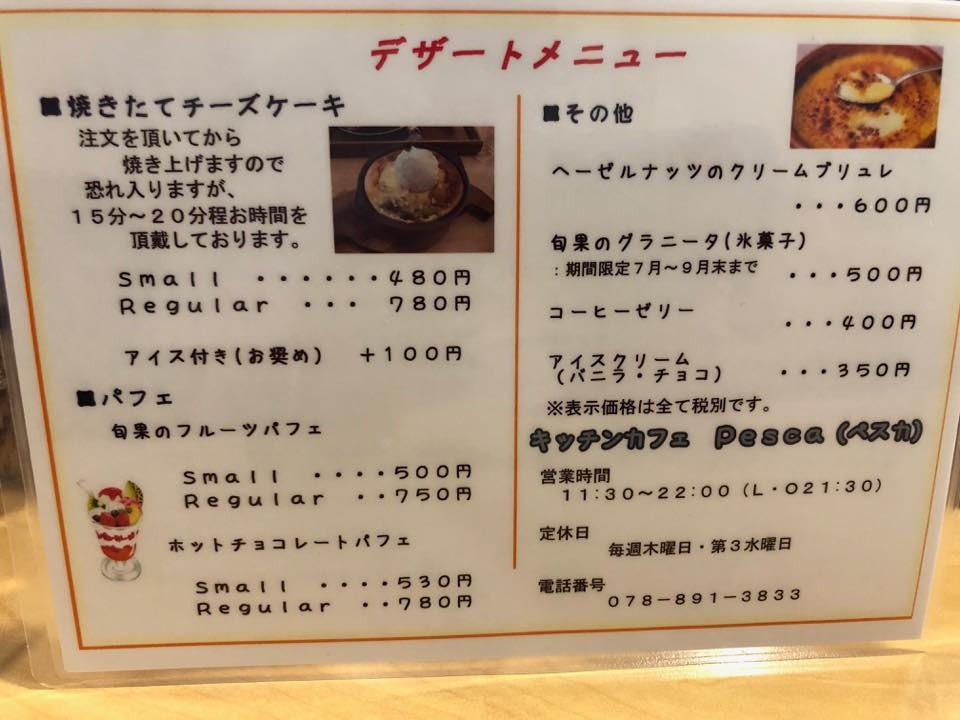 デザートメニュー
■焼きたてチーズケーキ
注文を頂いてから
焼き上げますので
恐れ入りますが、
１５分～２０分程お時間を
頂戴しております。
Small ・・・・・・480円
Regular ・・・ 780円
アイス付き(お奨め) ＋100円
■パフェ
旬果のフルーツパフェ
Small ・・・・500円
Regular ・・750円
ホットチョコレートパフェ
Small ・・・・530円
Regular ・・780円
■その他
ヘーゼルナッツのクリームブリュレ
・・・600円
旬果のグラニータ(氷菓子)
：期間限定７月～９月末まで ・・・500円
コーヒーゼリー
・・・400円
アイスクリーム
(バニラ・チョコ) ・・・350円
※表示価格は全て税別です。
キッチンカフェ Pesca (ペスカ)
営業時間
11:30～22:00 (L・O21:30)
定休日
毎週木曜日・第３水曜日
電話番号
078－891－3833